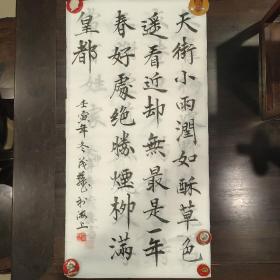 天街小雨潤如酥草色
遥看近却無最是一年
春好處绝勝煙柳滿
皇都
壬寅年冬